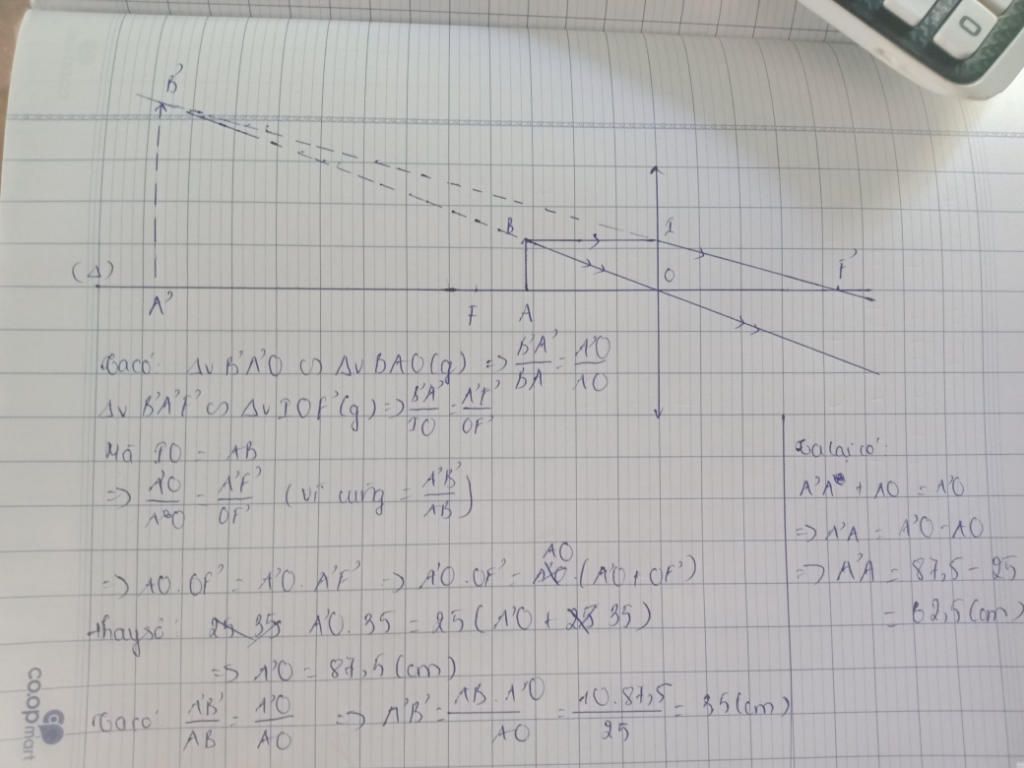 B'
B
I
(Δ)
O
F'
A'
F
A
Ta có: Δv B'A'O ∽ Δv BAO (g) => B'A'/BA = A'O/AO
Δv B'A'F' ∽ Δv IOF' (g) => B'A'/IO = A'F'/OF'
Mà IO = AB
=> A'O/AO = A'F'/OF' (vì cùng = A'B'/AB)
=> AO.OF' = A'O.A'F' => A'O.OF' = AO.(A'O + OF')
Thay số: A'O.35 = 25(A'O + 35)
=> A'O = 87,5 (cm)
Ta có: A'B'/AB = A'O/AO => A'B' = AB.A'O/AO = 10.87,5/25 = 35 (cm)
Ta lại có:
A'A + AO = A'O
=> A'A = A'O - AO
=> A'A = 87,5 - 25
= 62,5 (cm)
co.opmart
0